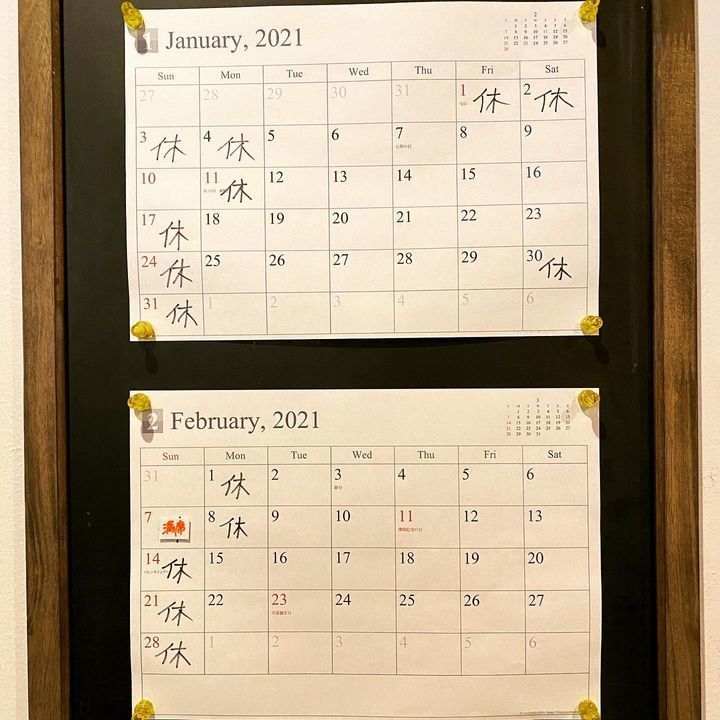 1 January, 2021
2
Sun Mon Tue Wed Thu Fri Sat
27 28 29 30 31 1 休 2 休
3 休 4 休 5 6 7 8 9
七草の日
10 11 休 12 13 14 15 16
17 休 18 19 20 21 22 23
24 休 25 26 27 28 29 30 休
31 休 1 2 3 4 5 6
2 February, 2021
3
Sun Mon Tue Wed Thu Fri Sat
31 1 休 2 3 4 5 6
節分
7 満席 8 休 9 10 11 12 13
建国記念の日
14 休 15 16 17 18 19 20
バレンタインデー
21 休 22 23 24 25 26 27
天皇誕生日
28 休 1 2 3 4 5 6